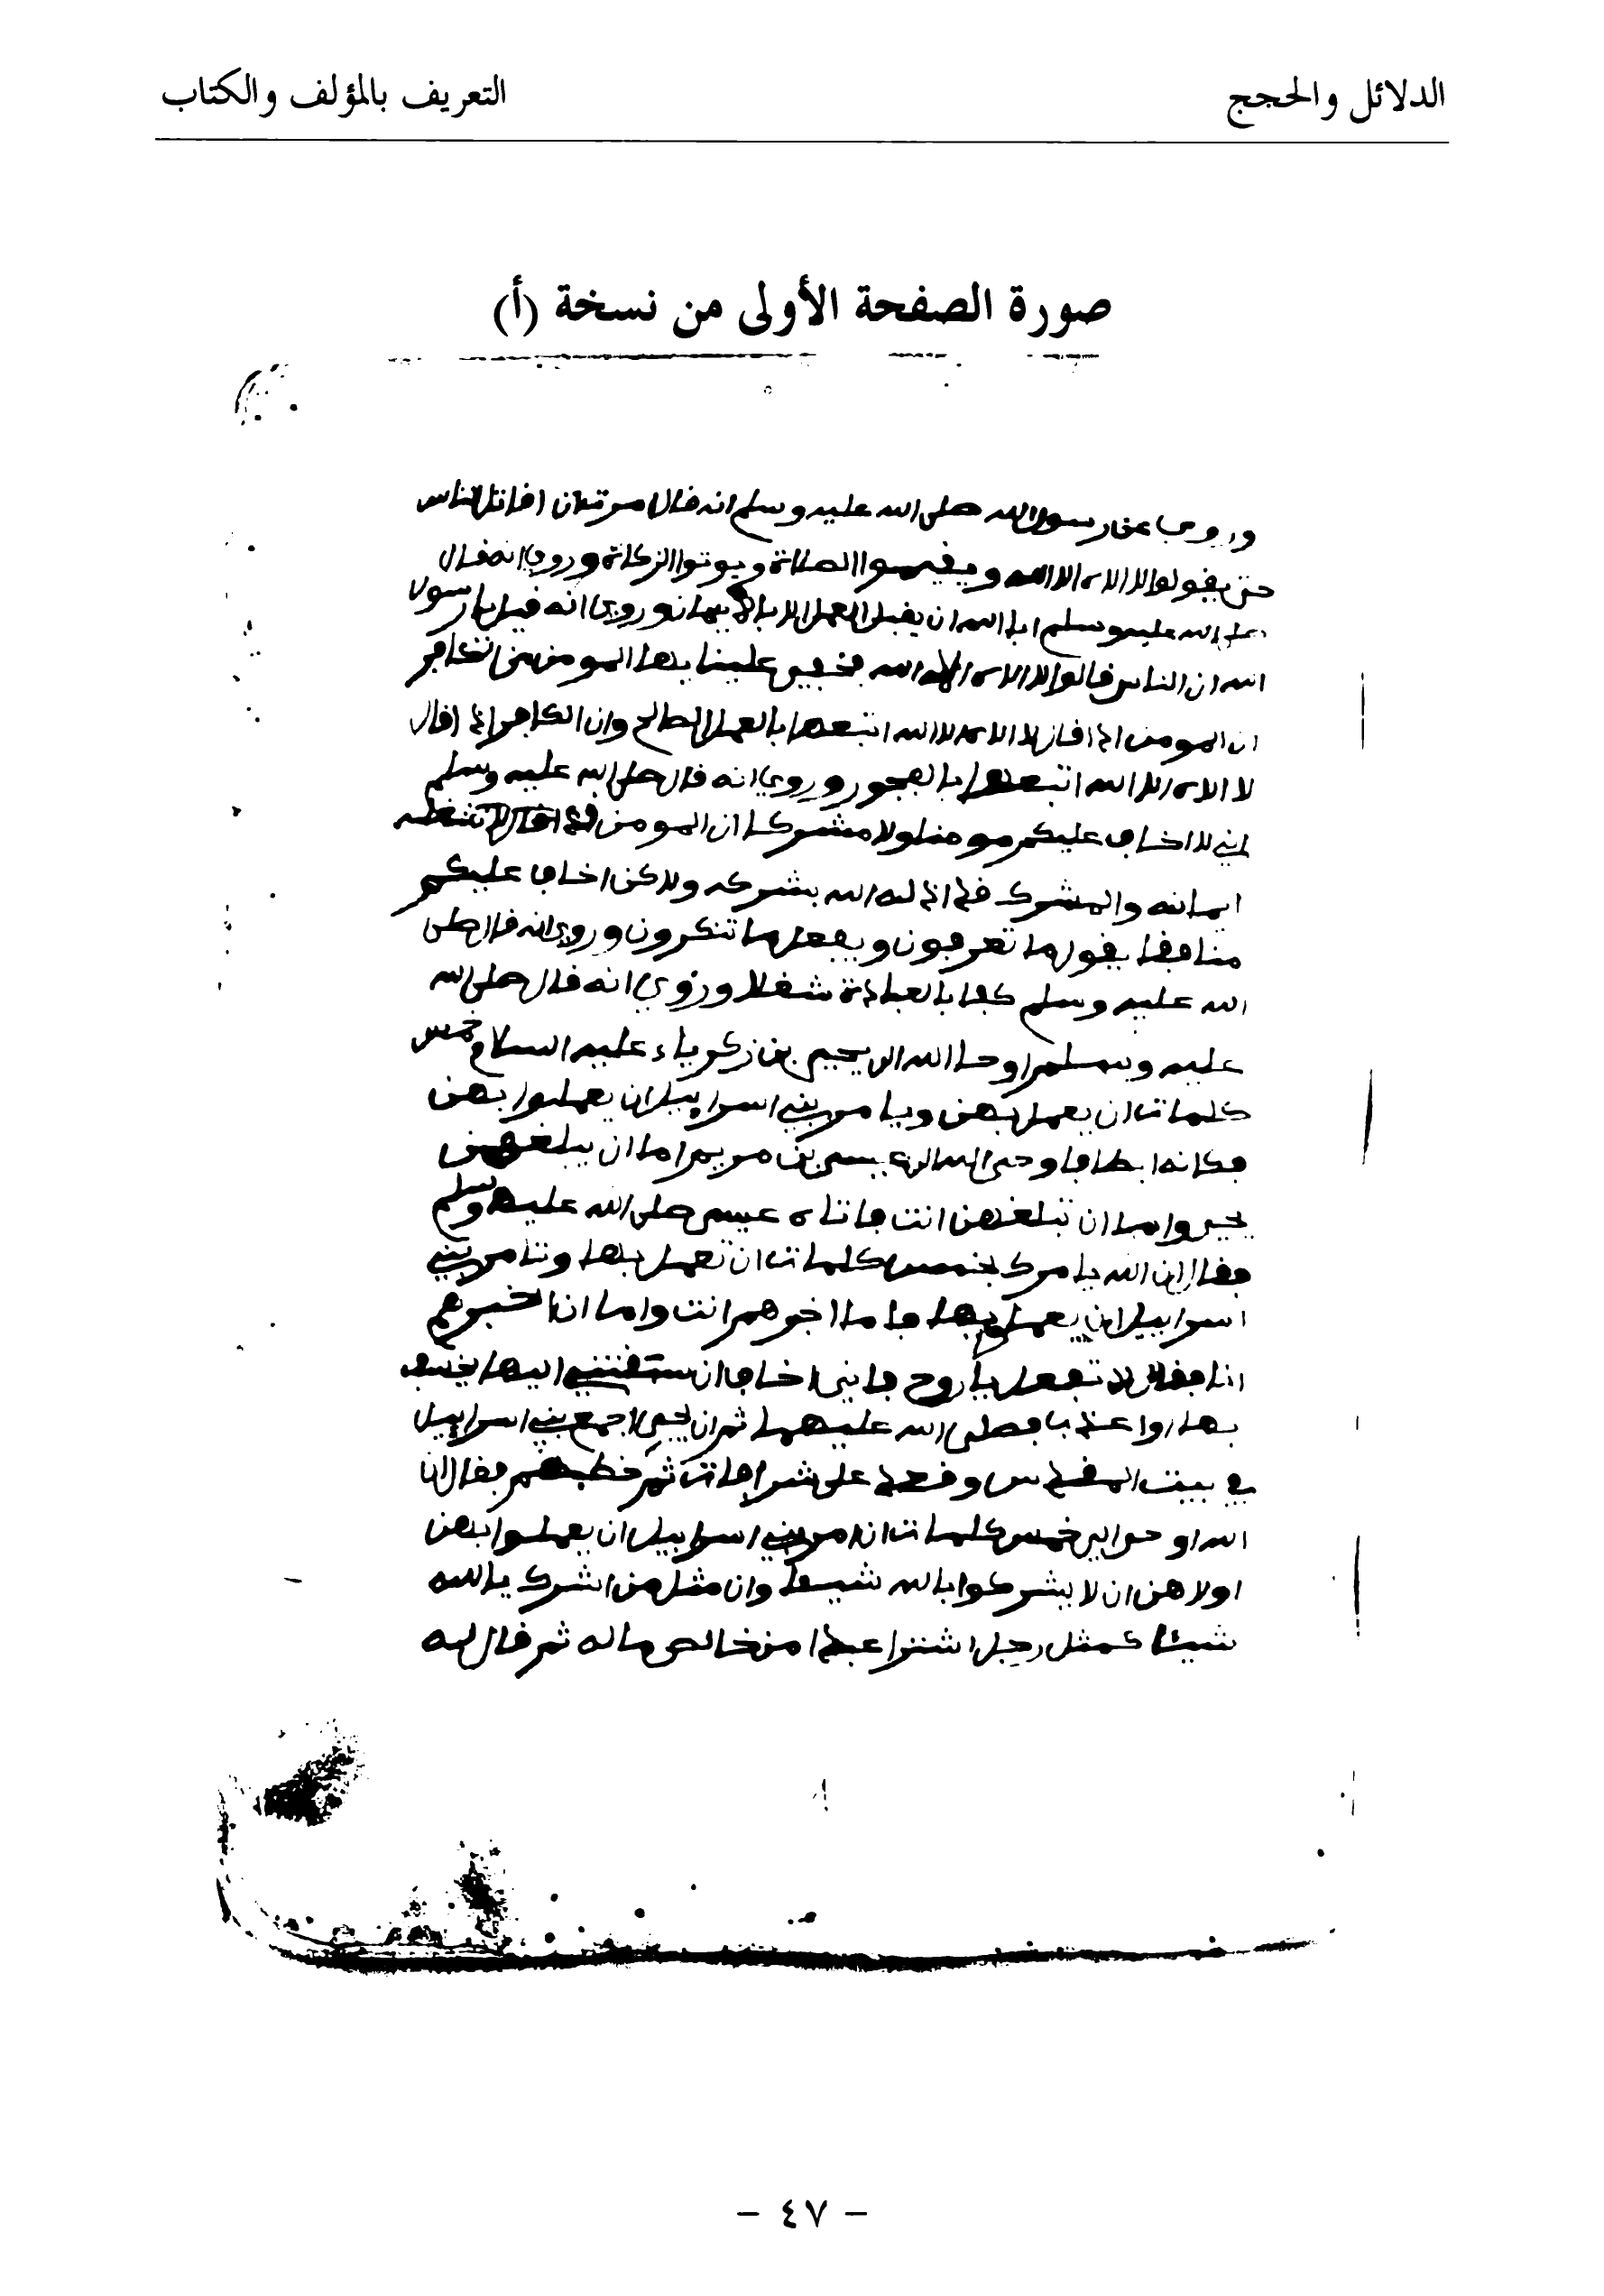 الدلائل والحجج
التعريف بالمؤلف والكتاب
صورة الصفحة الأولى من نسخة (أ)
وروي عن رسول الله صلى الله عليه وسلم انه قال امرت ان اقاتل الناس
حتى يقولوا لا الاه الا الله ويقيموا الصلاة ويوتوا الزكاة وروي انه قال
صلى الله عليه وسلم ابا الله ان يقبل العمل الا بالايمان وروي انه قيل يا رسول
الله ان الناس قالوا لا الاه الا الله علينا بها المومن من
ان المومن اذا قال لا الاه الا الله اتبعها بالعمل الصالح وان الكافر اذا قال
لا الاه الا الله اتبعها بالفجور وروي انه قال صلى الله عليه وسلم
اني لا اخاف عليكم مومنا ولا مشركا ان المومن
ايمانه والمشرك قد اذله الله بشركه ولاكن اخاف عليكم
منافقا يقول ما تعرفون ويفعل ما تنكرون وروي انه قال صلى
الله عليه وسلم كفا بالعبادة شغلا وروي انه قال صلى الله
عليه وسلم اوحا الله الى يحيى بن زكرياء عليه السلام خمس
كلمات ان يعمل بهن ويامر بني اسراييل ان يعملوا بهن
فكانه ابطا فاوحى الله الى عيسى بن مريم اما ان يبلغهن
يحيى واما ان تبلغهن انت فاتاه عيسى صلى الله عليه وسلم
فقال ان الله يامرك بخمس كلمات ان تعمل بها وتامر بني
اسراييل ان يعملوا بها فاما اخبرهم انت واما ان اخبرهم
انا فقال لا تفعل يا روح فاني اخاف ان سبقتني اليها يخسف
بها او اعذب فصلى الله عليهما ثم ان يحيى جمع بني اسراييل
في بيت المقدس وقعد على شرافات ثم خطبهم فقال ان
الله اوحى الي خمس كلمات ان امر بني اسراييل ان يعملوا بهن
اولاهن ان لا يشركوا بالله شيئا وان مثل من اشرك بالله
شيئا كمثل رجل اشترا عبدا من خالص ماله ثم قال له
- ٤٧ -